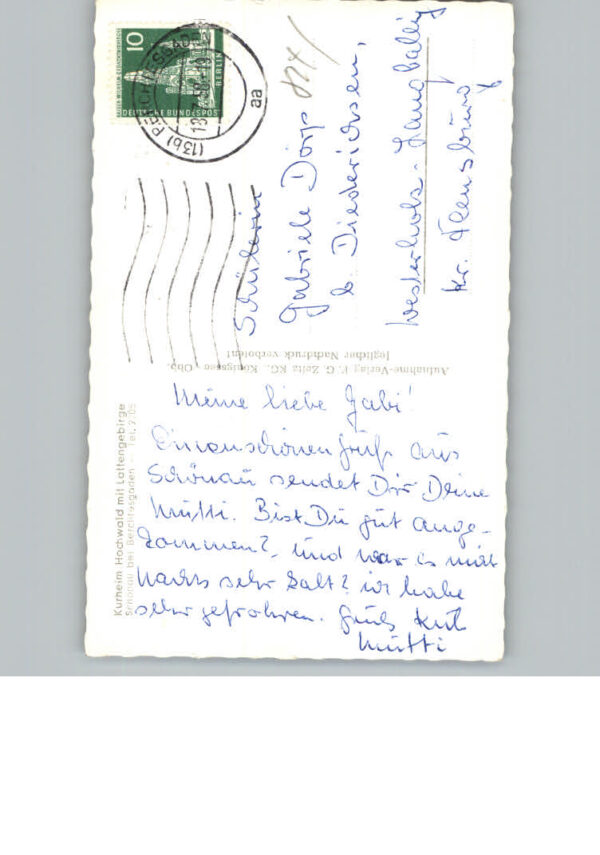 Meine liebe Gabi!
Einen schönen Gruß aus
Schönau sendet Dir Deine
Mutti. Bist Du gut ange-
kommen? Und war es
nachts sehr kalt? ich habe
sehr gefrohren. Gruß Kuß
Mutti
Schülerin
Gabriele Dörp
b. Diederichsen,
Westerholz-Langballig
Kr. Flensburg
Kurheim Hochwald mit Lattengebirge
Schönau bei Berchtesgaden - Tel. 2705
Aufnahme-Verlag F. G. Zeitz KG. Königssee Obb.
Jeglicher Nachdruck verboten!
10
BERLIN
DEUTSCHE BUNDESPOST
(13b) BERCHTESGADEN
aa